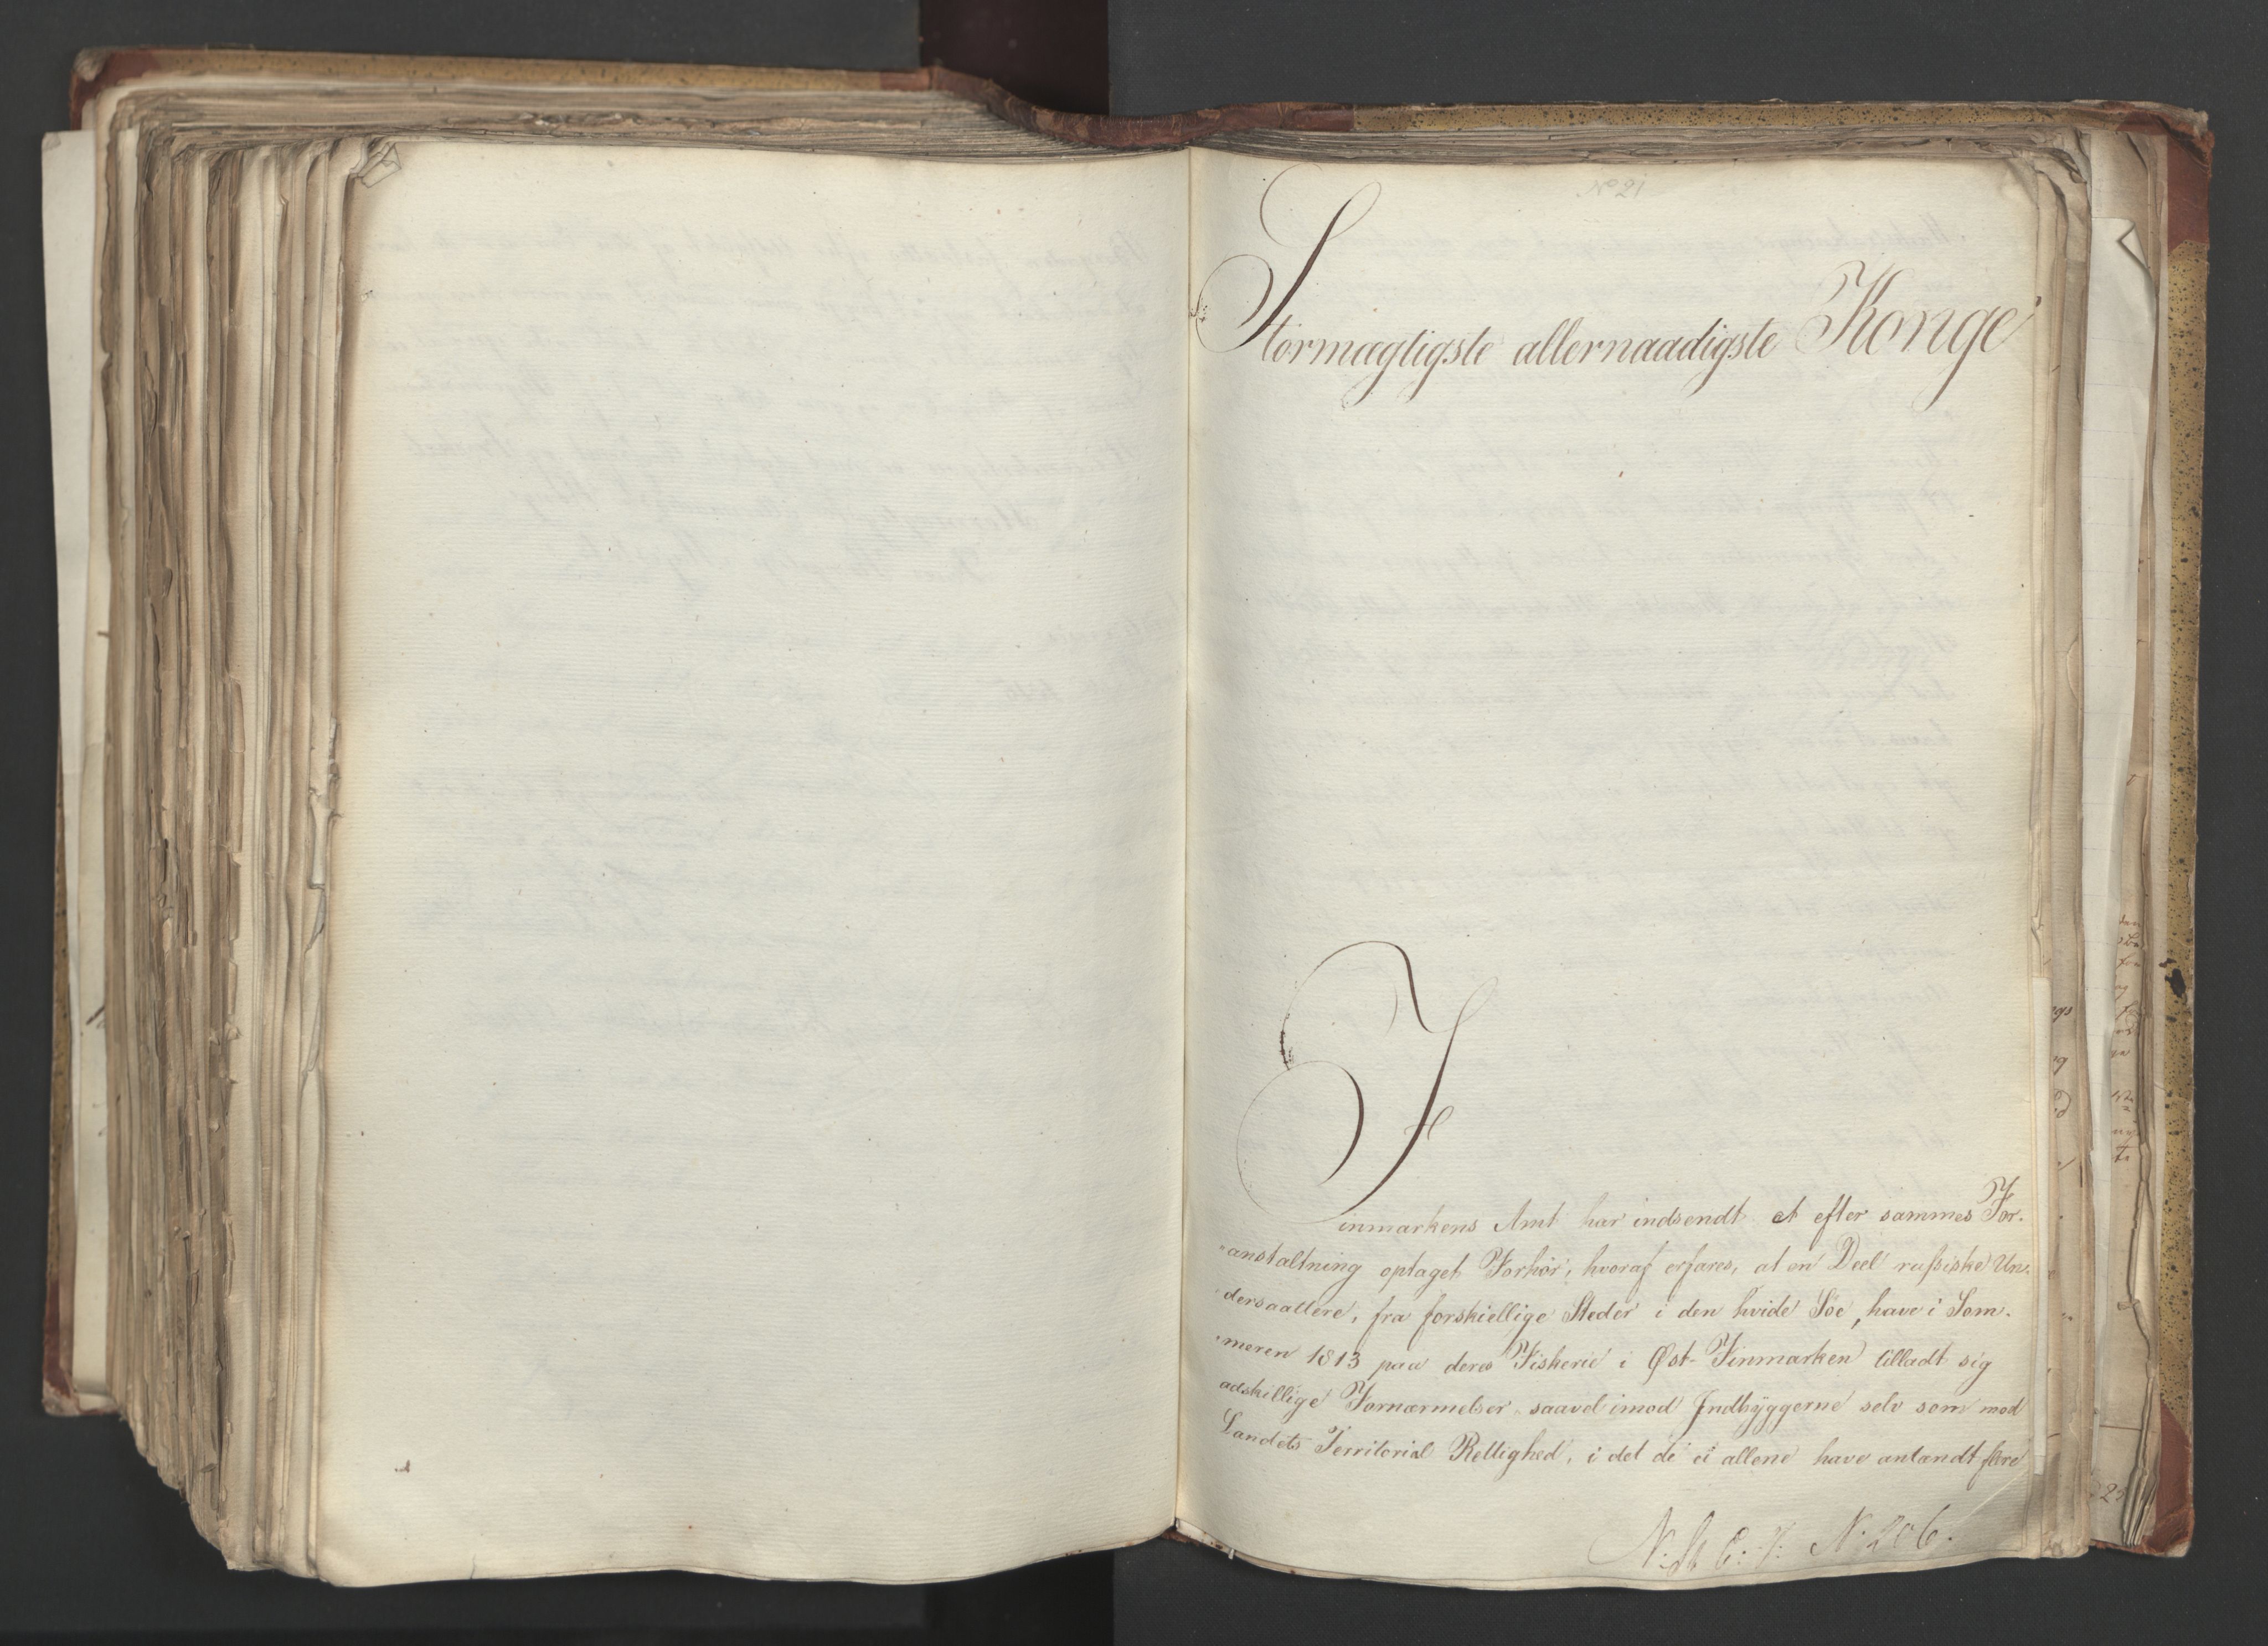 No 21
Stormægtigste allernaadigste Konge
Finmarkens Amt har indsendt et efter sammes For-
"anstaltning optaget Forhør, hvoraf erfares, at en Deel russiske Un-
"dersaattere, fra forskiellige Steder i den hvide Søe, have i Som-
"meren 1813 paa deres Fiskerie i Øst-Finmarken tilladt sig
adskillige Fornærmelser saavel imod Indbyggerne selv som mod
Landets Territorial Rettighed, i det de ei allene have antændt flere
No 206.